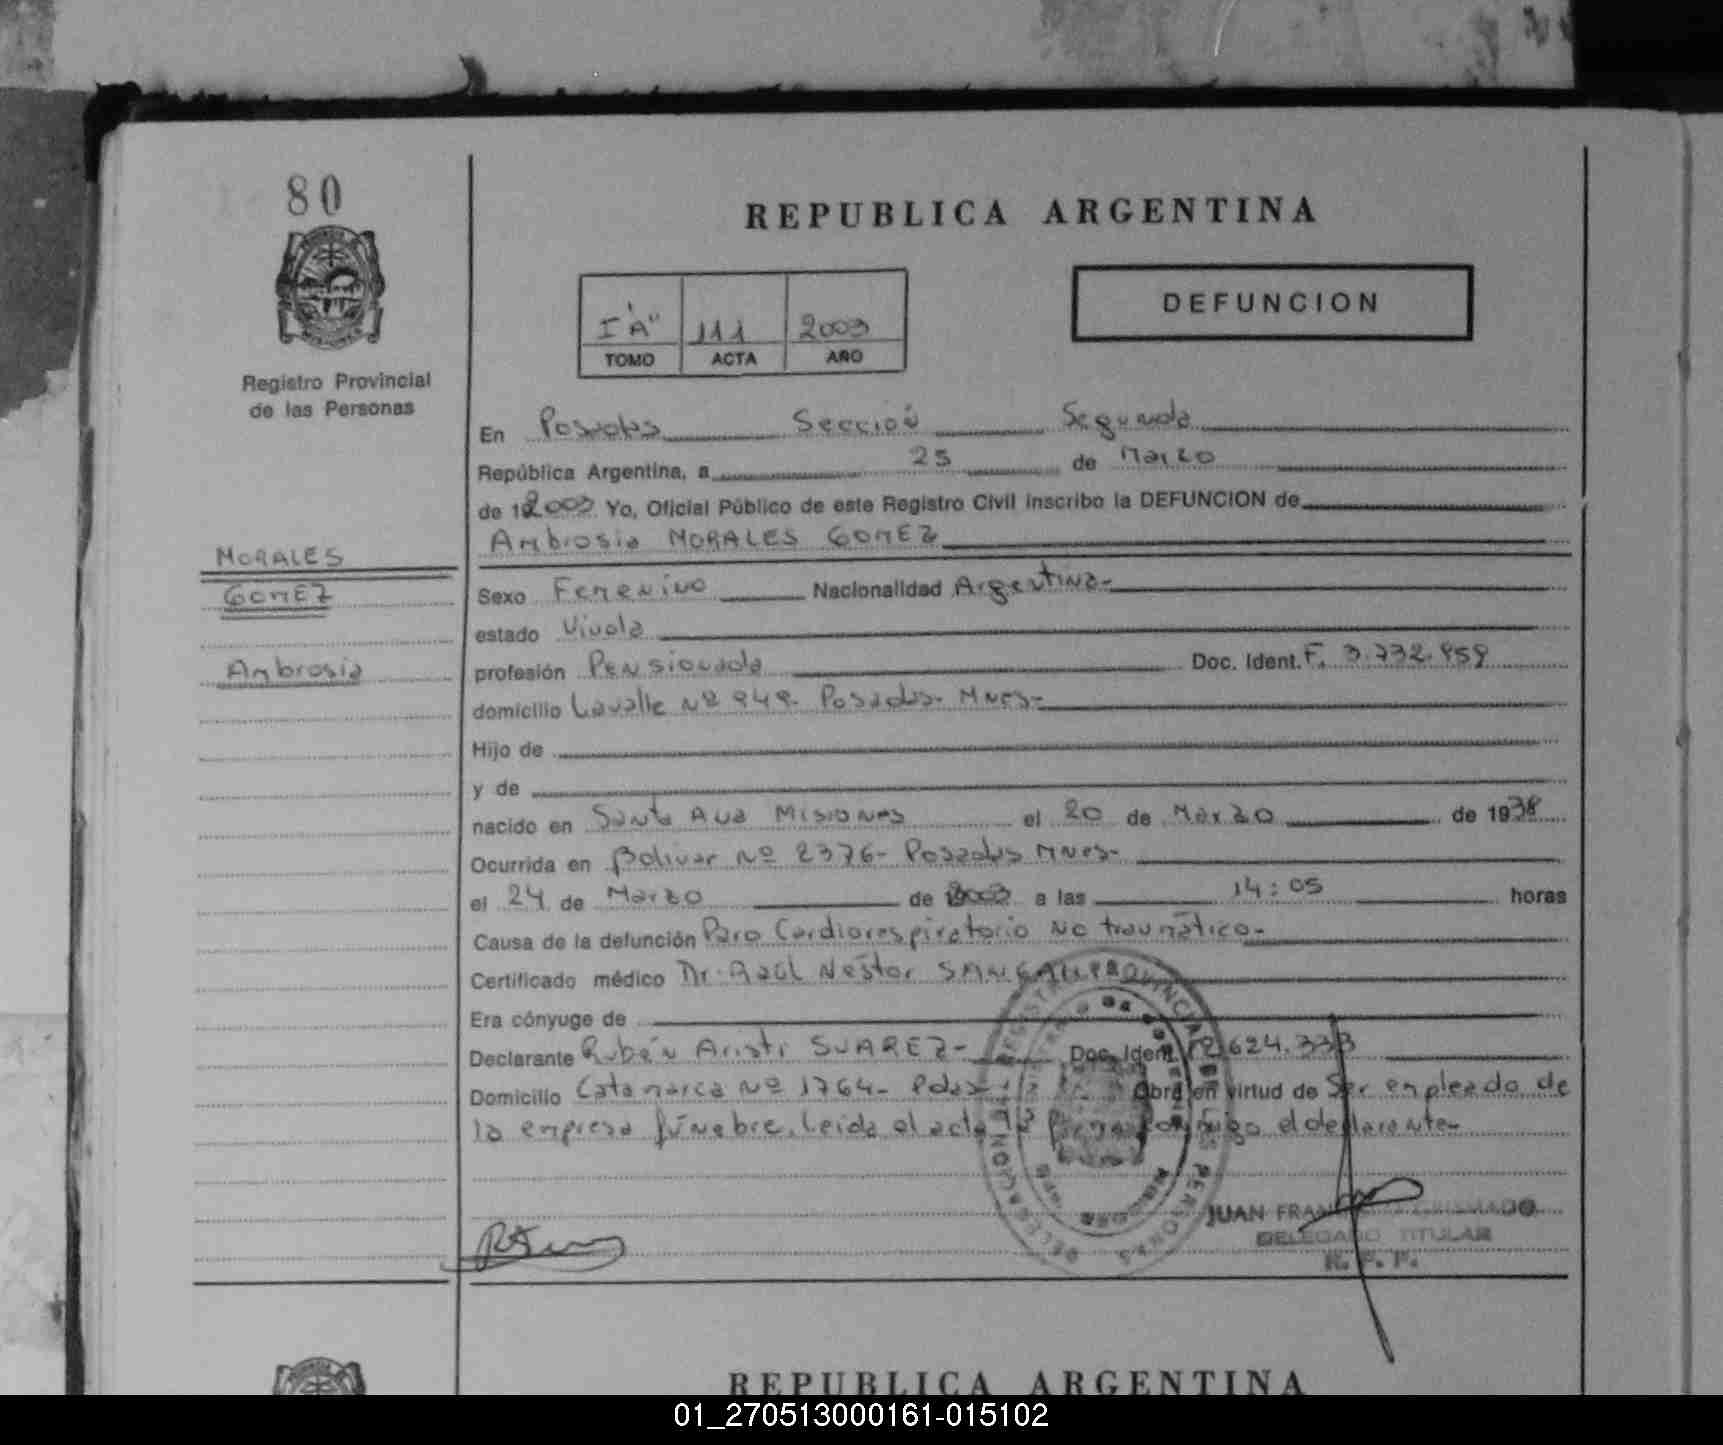 80
REPUBLICA ARGENTINA
DEFUNCION
I "A" 111 2003
TOMO ACTA AÑO
Registro Provincial
de las Personas
En Posadas Sección Segunda
República Argentina, a 25 de Marzo
de 2003 Yo, Oficial Público de este Registro Civil inscribo la DEFUNCION de
Ambrosia MORALES GOMEZ
MORALES
GOMEZ
Ambrosia
Sexo Femenino Nacionalidad Argentina-
estado Viuda
profesión Pensionada Doc. Ident. F. 3.732.959
domicilio Lavalle Nº 949- Posadas- Mnes-
Hijo de
y de
nacido en Santa Ana Misiones el 20 de Marzo de 1938
Ocurrida en Bolivar Nº 2376- Posadas Mnes-
el 24 de Marzo de 2003 a las 14:05 horas
Causa de la defunción Paro Cardiorespiratorio No traumático-
Certificado médico Dr. Raúl Nestor
Era cónyuge de
Declarante Rubén Aristi SUAREZ- Doc. Ident. 624.333
Domicilio Catamarca Nº 1764- Pdas- Obra en virtud de Ser empleado de
la empresa fúnebre. Leida el acta la firma conmigo el declarante-
REGISTRO PROVINCIAL DE LAS PERSONAS
DELEGACION
JUAN FRAN
DELEGADO TITULAR
R. P. P.
REPUBLICA ARGENTINA
01_270513000161-015102